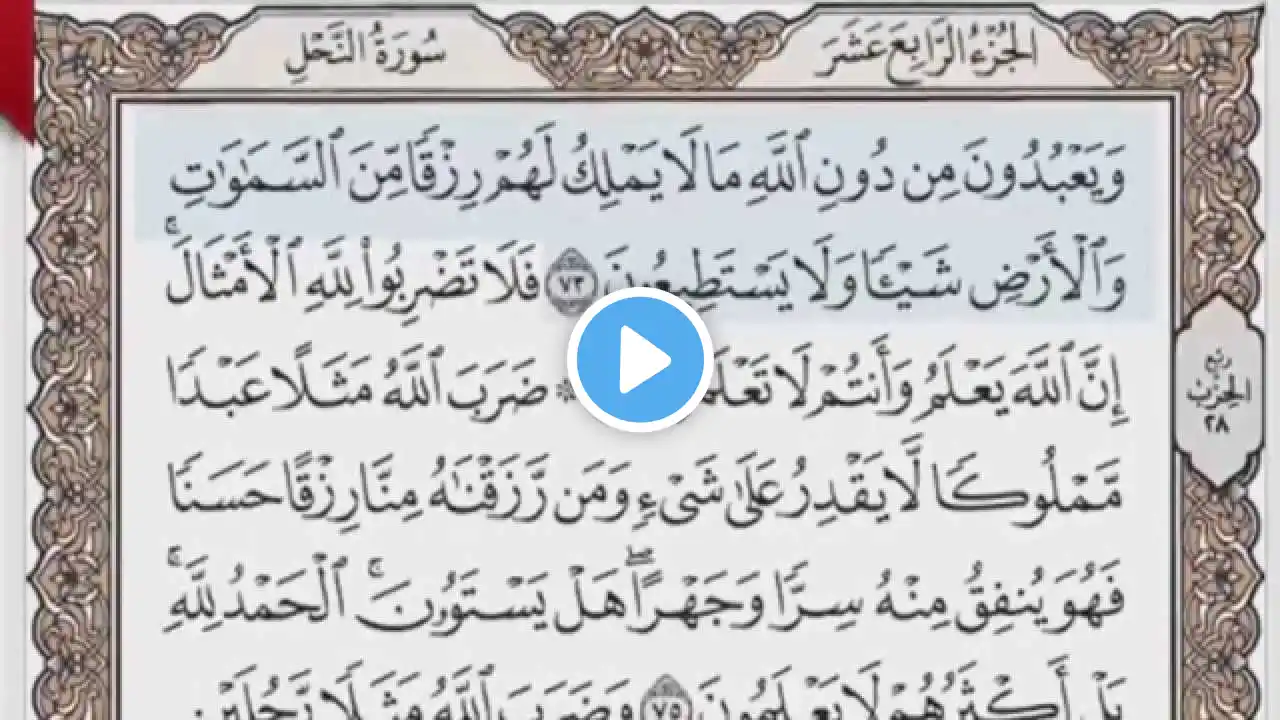 الجُزْءُ الرَّابِعَ عَشَرَ
سُورَةُ النَّحْلِ
وَيَعْبُدُونَ مِن دُونِ ٱللَّهِ مَا لَا يَمْلِكُ لَهُمْ رِزْقًا مِّنَ ٱلسَّمَٰوَٰتِ
وَٱلْأَرْضِ شَيْـًٔا وَلَا يَسْتَطِيعُونَ ٧٣ فَلَا تَضْرِبُوا۟ لِلَّهِ ٱلْأَمْثَالَ ۚ
إِنَّ ٱللَّهَ يَعْلَمُ وَأَنتُمْ لَا ۞ ضَرَبَ ٱللَّهُ مَثَلًا عَبْدًا
مَّمْلُوكًا لَّا يَقْدِرُ عَلَىٰ شَىْءٍ وَمَن رَّزَقْنَٰهُ مِنَّا رِزْقًا حَسَنًا
فَهُوَ يُنفِقُ مِنْهُ سِرًّا وَجَهْرًا ۖ هَلْ يَسْتَوُۥنَ ۚ ٱلْحَمْدُ لِلَّهِ ۚ
بَلْ أَكْثَرُهُمْ لَا يَعْلَمُونَ ٧٥ وَضَرَبَ ٱللَّهُ مَثَلًا رَّجُلَيْنِ
رُبْع
الحِزْب
٢٨